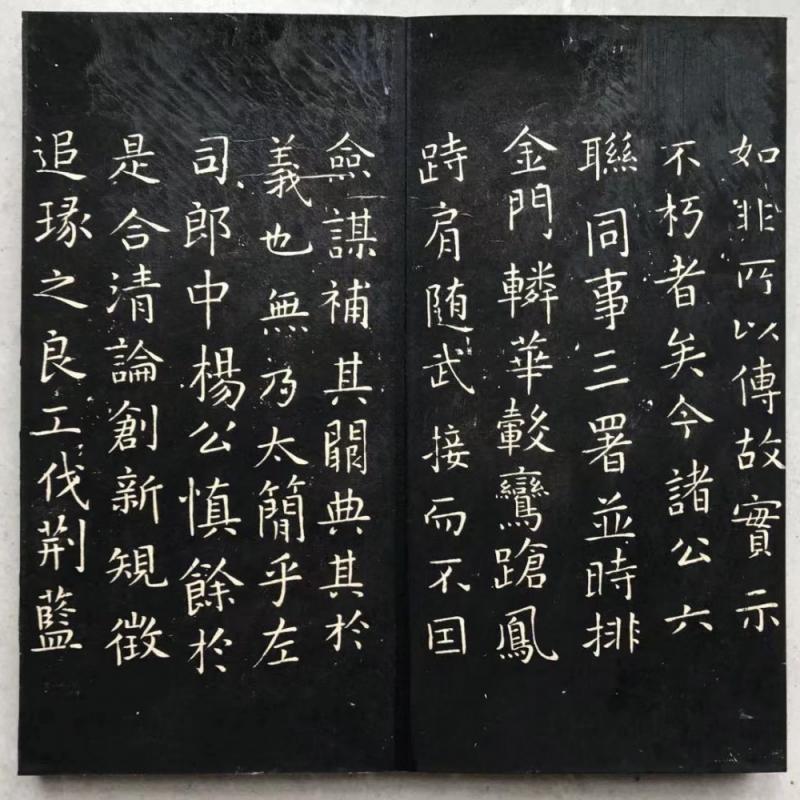 如非所以傳故實示
不朽者矣今諸公六
聯同事三署並時排
金門轔華轂鸞蹌鳳
跱肩随武接而不因
僉謀補其闕典其於
義也無乃太簡乎左
司郎中楊公慎餘於
是合清論創新規徵
追琢之良工伐荆藍